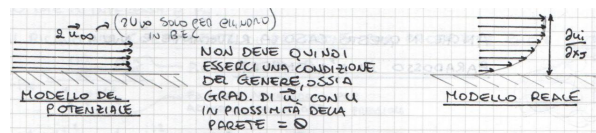 2 u∞ (2U∞ SOLO PER CILINDRO)
IN B E C
NON DEVE QUINDI
ESSERCI UNA CONDIZIONE
DEL GENERE, OSSIA
GRAD. DI u, CON u
IN PROSSIMITÀ DELLA
PARETE = 0
MODELLO DEL
POTENZIALE
∂ui
∂xj
MODELLO REALE